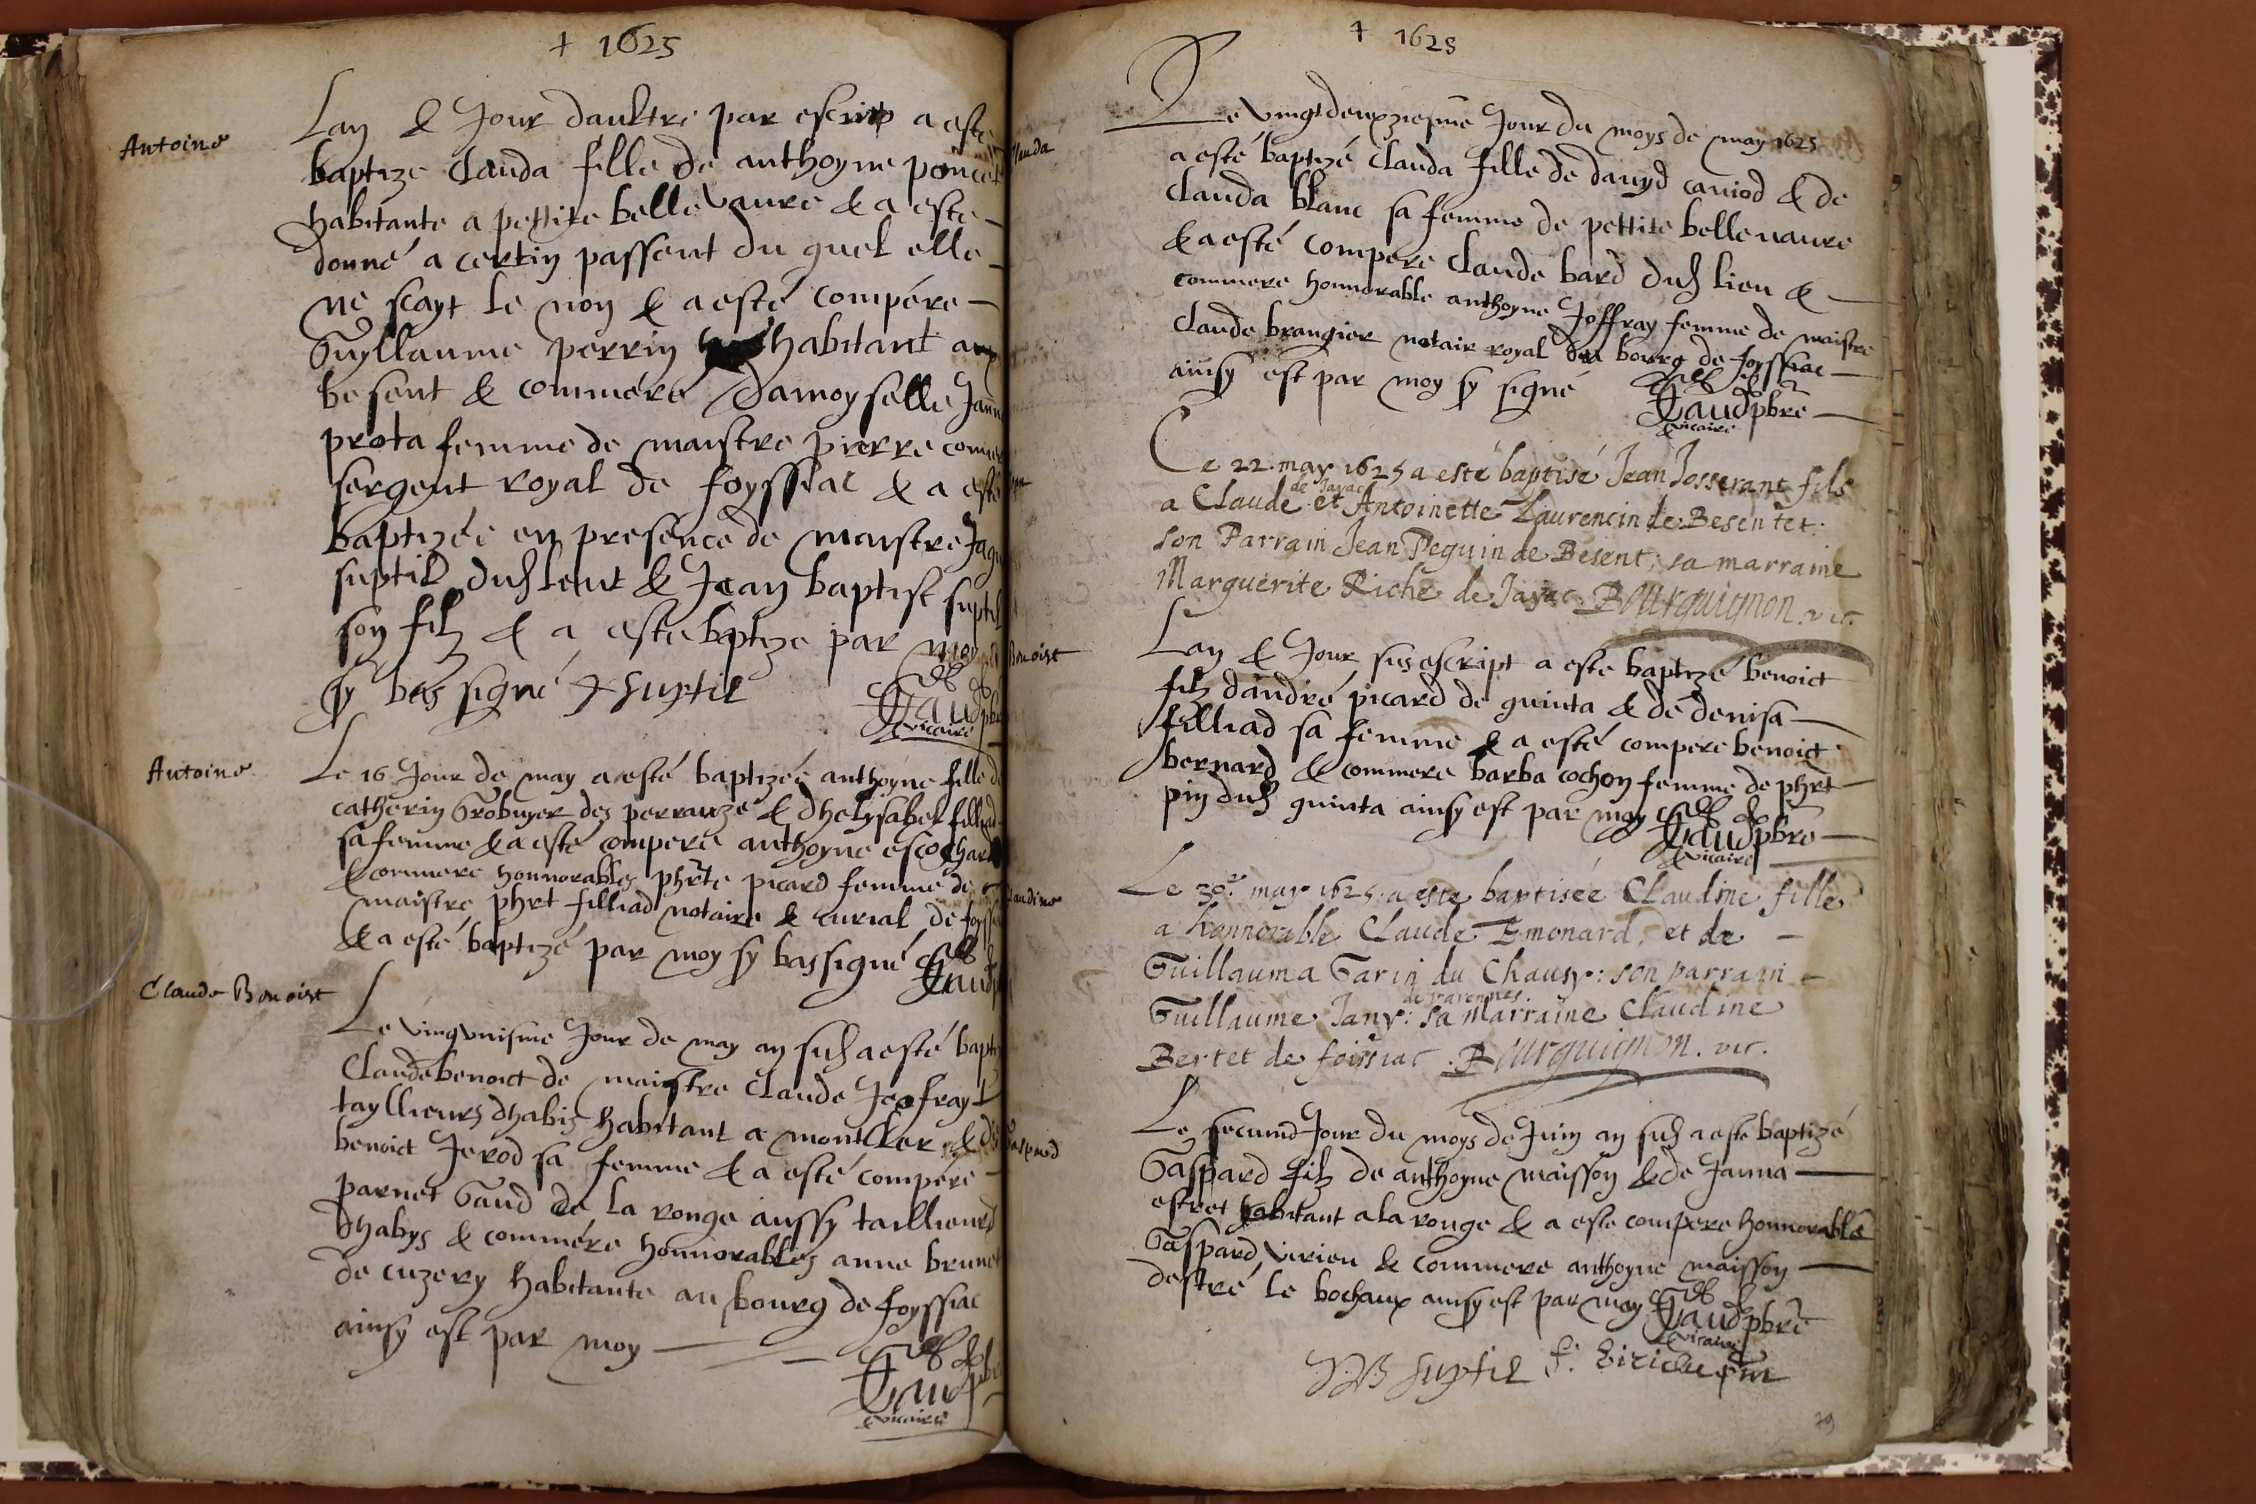 + 1625
Antoine
Lan & Jour daultre par escript a este
baptize Clauda fille de anthoyne poncet
habitante a pettite bellevavre & a este
donné a certin passent du quel elle
ne scayt le non & a esté compére
Guyllaume perrin habitant aux
besent & commére damoyselle Janne
prota femme de maistre pierre
sergent royal de foyssiac & a este
baptizée en presence de maistre
suptil dud lent & Jean baptist suptil
son filz & a este bptize par moy
sy bas signé suptil
Gaud pbre
vicaire
Antoine
Le 16 Jour de may a esté baptizée anthoyne fille de
catherin Grobuyer des perrauze & dhelysabet filliad
sa femme & a esté compere anthoyne escochard
& commere honnorables phrte picard femme de
maistre phrt filliad notaire & curial de
& a esté baptizé par moy sy bas signé
Gaud
Claude Benoist
Le vingunisme Jour de may an susd a esté bapt
Claude benoict de maistre Claude Jeofray
taylliens dhabis habitant a montcler &
benoict Jerod sa femme & a esté compére
parnet Gaud de la ronge aussy tailliens
dhabys & commére honnorables anne brunet
de cuzery habitante au bourg de foyssiac
ainsy est par moy
Gaud
vicaire
+ 1625
Clauda
Le vingtdeuxziesme Jour du moys de may 1625
a esté baptizé Clauda fille de dauyd caniod & de
Clauda blanc sa femme de pettite bellevavre
& a esté compere Claude bard dud lieu &
commere honnorable anthoyne Joffray femme de maistre
Claude brangier notair royal du bourg de foyssiac
ainsy est par moy sy signé
Gaud pbre
vicaire
Ce 22. may 1625 a esté baptisé Jean Josserant fils
de Jayac
a Claude et Antoinette Laurencin de Besentet.
son Parrain Jean Peguin de Besent, sa marraine
Marguerite Riche de Jayac. Bourguignon. vic.
Benoist
Lan & Jour susescript a este baptizé benoict
filz dandré picard de guinta & de denisa
filliad sa femme & a esté compere benoict
bernard & commere barba cochon femme de phrt
pin dud guinta ainsy est par moy
Gaud pbre
vicaire
Claudine
Le 30e may 1625. a este baptisée Claudine fille
a honnorable Claude Emonard, et de
Guillauma Garin du Chausy: son parrain
de Varennes.
Guillaume Jany: sa Marraine Claudine
Bertet de foissiac. Bourguignon. vic.
Gaspard
Le second Jour du moys de Juin an susd a este baptizé
Gaspard filz de anthoyne maisson & de Janna
estret habitant a la ronge & a este compere honnorable
Gaspard virieu & commere anthoyne maisson
destré le bochaux ainsy est par moy
Gaud pbre
vicaire
J.B suptil
79